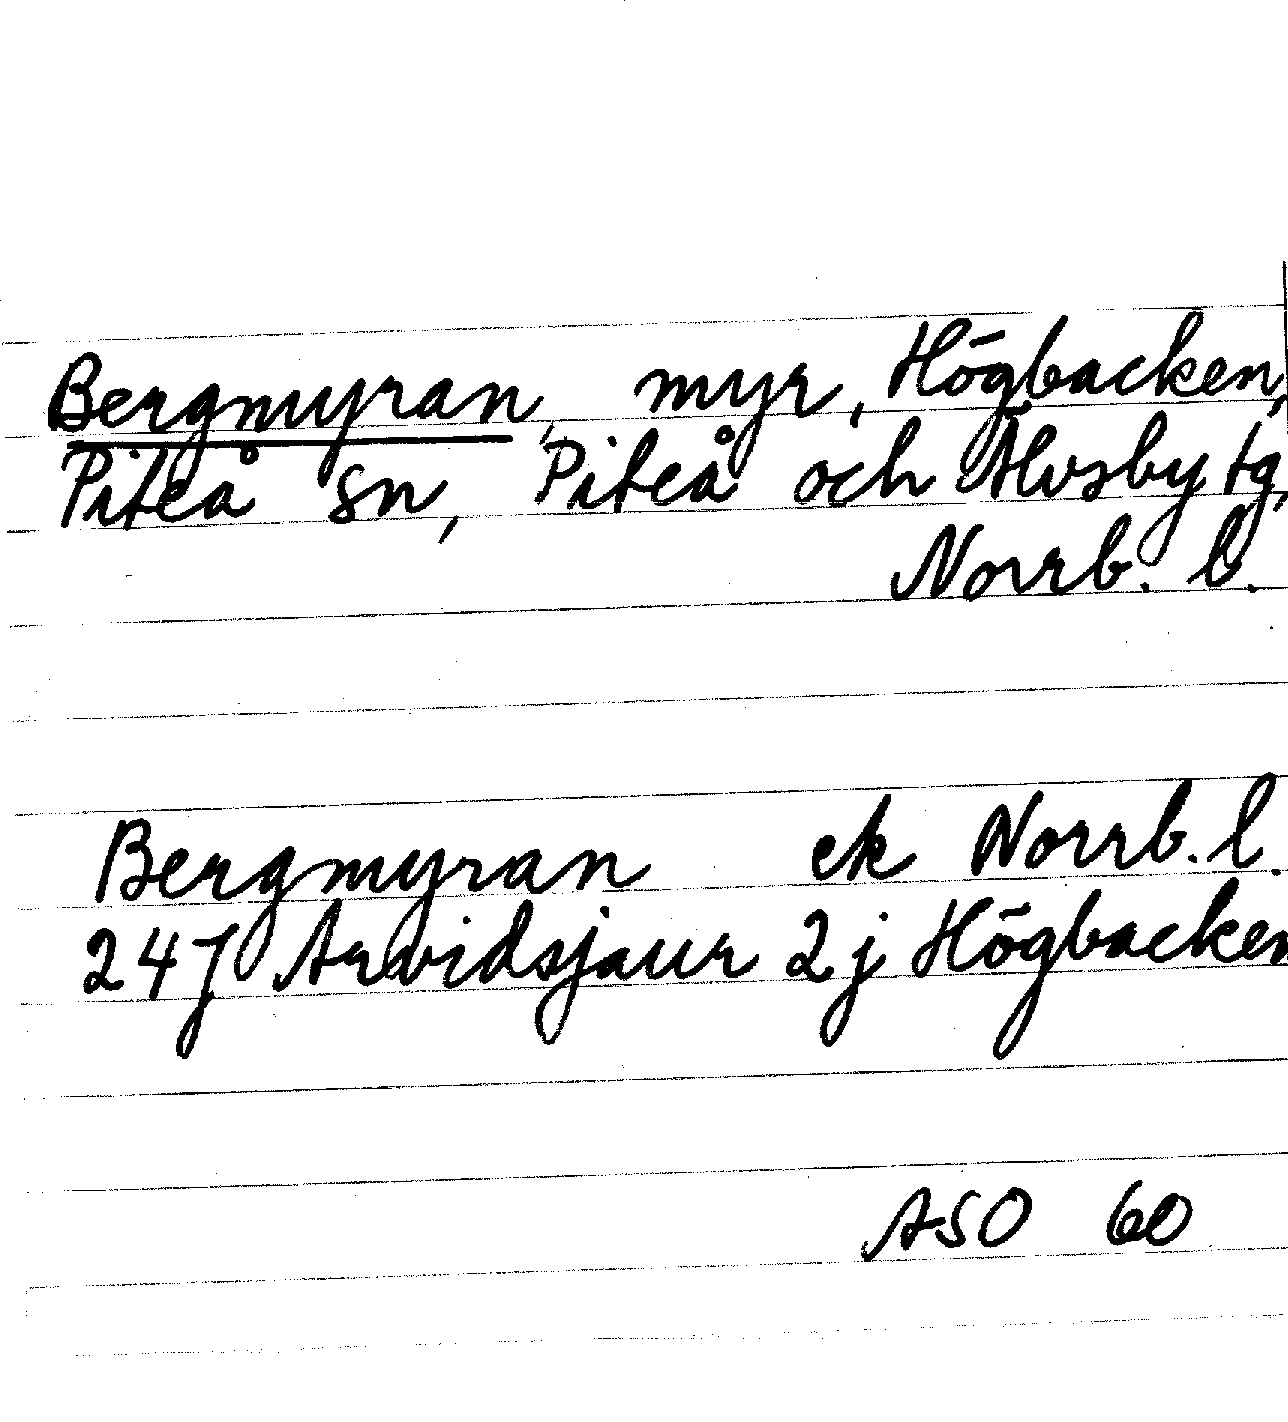 Bergmyran, myr, Högbacken,
Piteå sn, Piteå och Älvsby tg,
Norrb. l.
Bergmyran ek Norrb. l.
24J Arvidsjaur 2j Högbacken
ASO 60